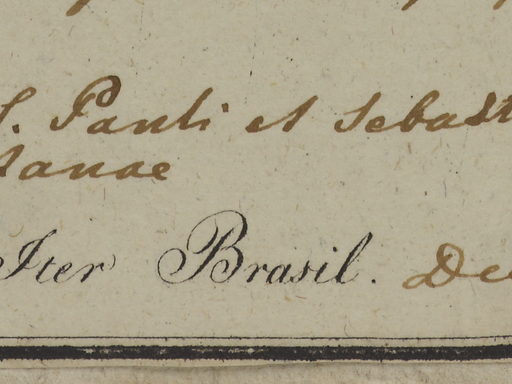 S. Pauli et Sebast
tanae
Iter Brasil. De